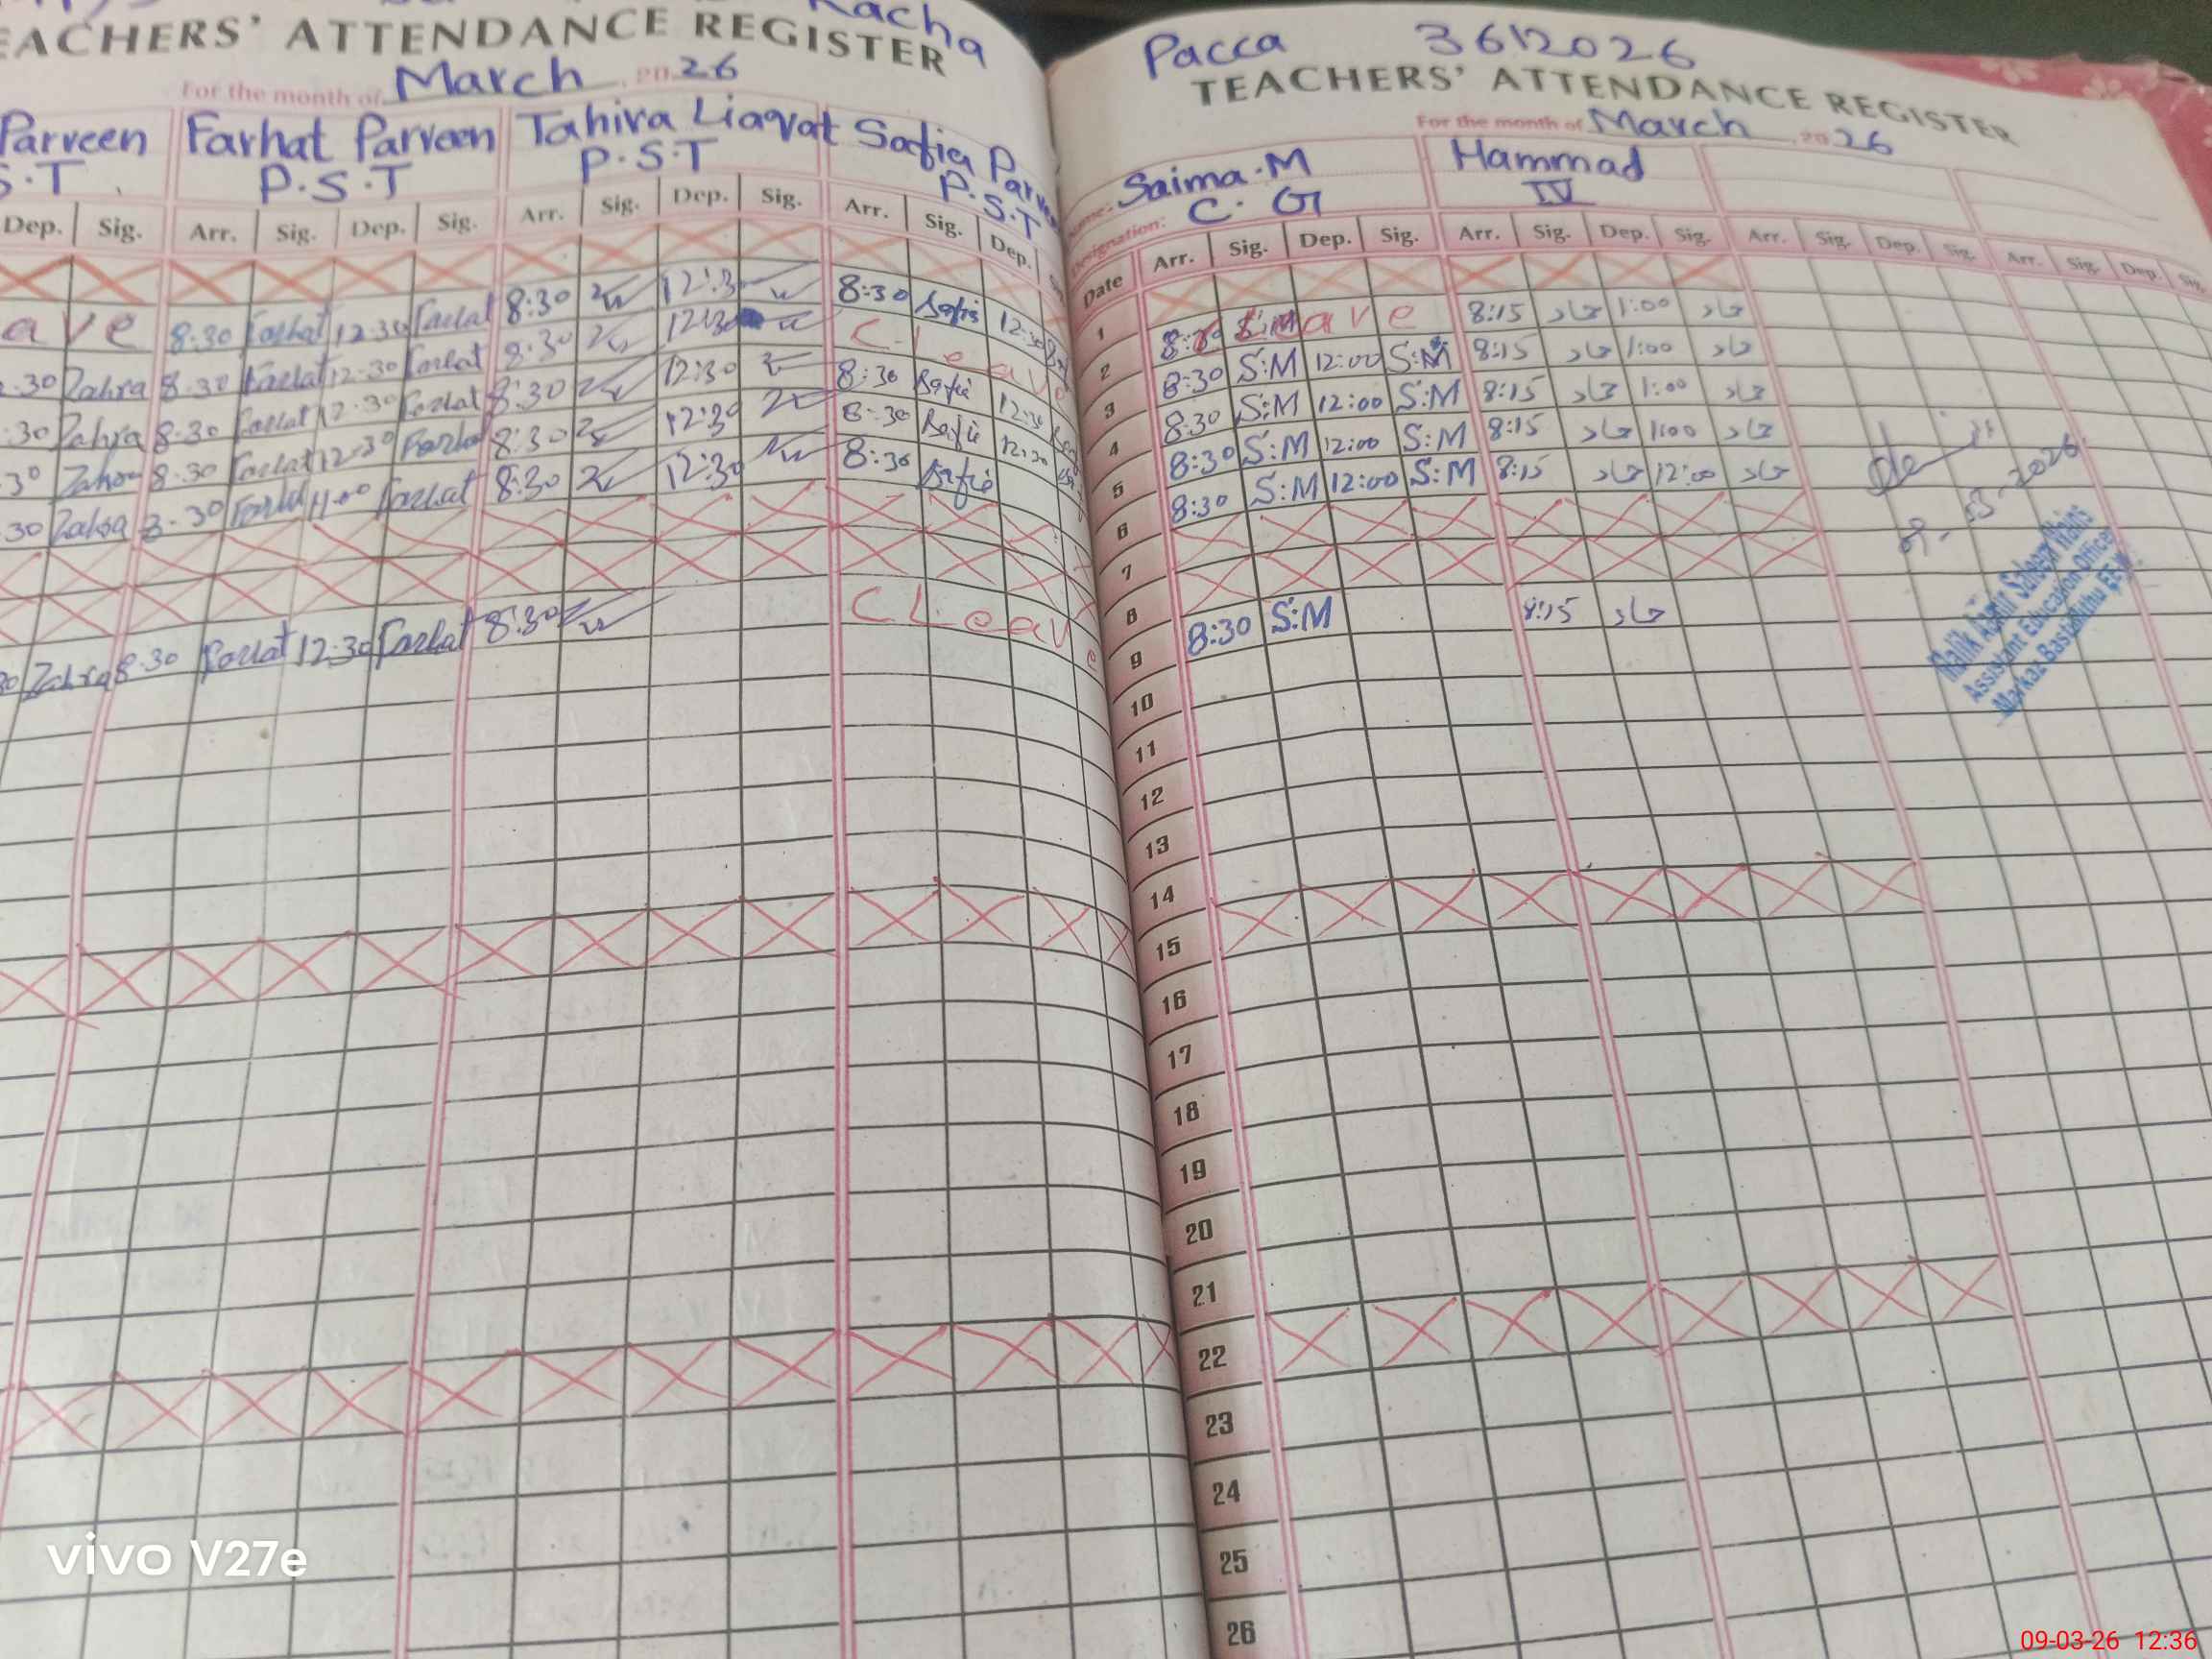 Kacha
TEACHERS' ATTENDANCE REGISTER
For the month of March 2026
Parveen Farhat Parveen Tahira Liaqat Safia Parveen
S.T P.S.T P.S.T P.S.T
Dep. Sig. Arr. Sig. Dep. Sig. Arr. Sig. Dep. Sig. Arr. Sig. Dep.
ave 8:30 Farhat 12:30 Farhat 8:30 12:3 8:30 Safia 12:30
.30 Zahra 8.30 Farhat 12-30 Farhat 8:30 12:30 C. Leave
:30 Zahra 8.30 Farhat 12.30 Farhat 8:30 12:30 8:30 Safia 12:30
30 Zahra 8.30 Farhat 12-30 Farhat 8:30 12:30 8:30 Safia 12:30
30 Zahra 8.30 Farhat 11.00 Farhat 8:30 12:30 8:30 Safia
Zahra 8.30 Farhat 12.30 Farhat 8:30 C Leave
Pacca 3612026
TEACHERS' ATTENDANCE REGISTER
For the month of March 2026
Name: Saima.M Hammad
Designation: C.G IV
Date Arr. Sig. Dep. Sig. Arr. Sig. Dep. Sig. Arr. Sig. Dep. Sig. Arr. Sig. Dep. Sig.
1
2 8:30 S:M ave 8:15 حماد 1:00 حماد
3 8:30 S:M 12:00 S:M 8:15 حماد 1:00 حماد
4 8:30 S:M 12:00 S:M 8:15 حماد 1:00 حماد
5 8:30 S:M 12:00 S:M 8:15 حماد 1:00 حماد
6 8:30 S:M 12:00 S:M 8:15 حماد 12:00 حماد
7
8
9 8:30 S:M 8:15 حماد
10
11
12
13
14
15
16
17
18
19
20
21
22
23
24
25
26
2026
Malik Aamir Saleem
Assistant Education Officer
Markaz
vivo V27e
09-03-26 12:36